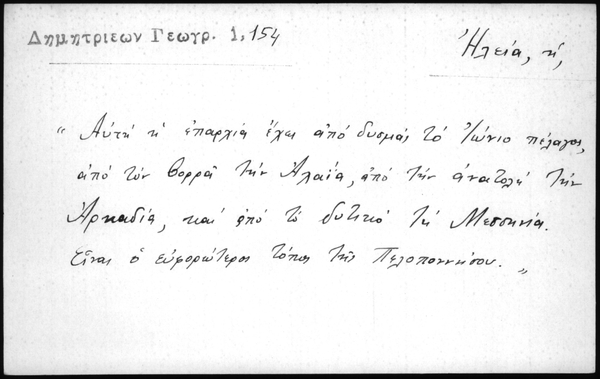 Δημητριεων Γεωγρ. 1, 154
Ἠλεία, ἡ,
“ Αὐτὴ ἡ ἐπαρχία ἔχει ἀπὸ δυσμὰς τὸ Ἰώνιο πέλαγος,
ἀπὸ τὸν βορρᾶ τὴν Ἀχαΐα, ἀπὸ τὴν ἀνατολὴ τὴν
Ἀρκαδία, καὶ ἀπὸ τὸ δυτικὸ τὴ Μεσσηνία.
Εἶναι ὁ εὐφορώτερος τόπος τῆς Πελοποννήσου. „